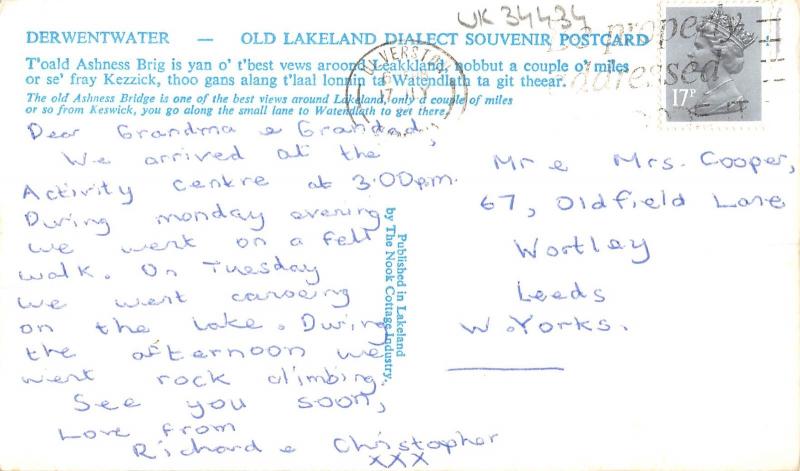 UK 34434
DERWENTWATER — OLD LAKELAND DIALECT SOUVENIR POSTCARD
T'oald Ashness Brig is yan o' t'best vews around Leakland, nobbut a couple o' miles
or se' fray Kezzick, thoo gans alang t'laal lonnin ta Watendlath ta git theear.
The old Ashness Bridge is one of the best views around Lakeland, only a couple of miles
or so from Keswick, you go along the small lane to Watendlath to get there.
ULVERSTON
17
Be properly
addressed
17P
Dear Grandma & Grandad,
We arrived at the
Activity centre at 3.00pm.
During monday evening
we went on a fell
walk. On Tuesday
we went canoeing
on the lake. During
the afternoon we
went rock climbing.
See you soon,
Love from
Richard & Christopher
xxx
Published in Lakeland
by The Nook Cottage Industry.
Mr & Mrs. Cooper,
67, Oldfield Lane
Wortley
Leeds
W. Yorks.